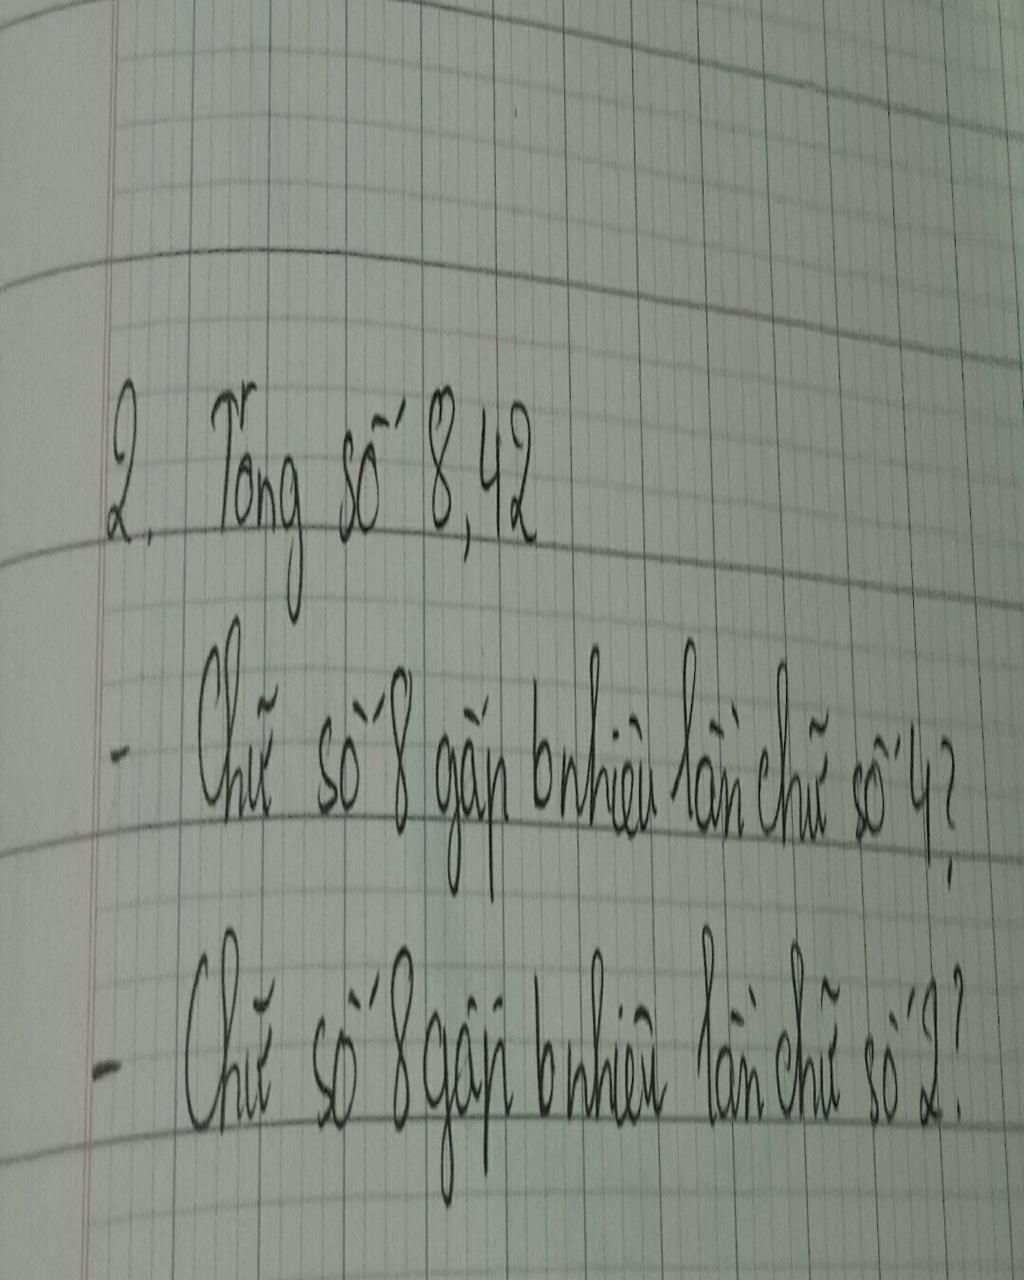 2. Trong số 8,42
- Chữ số 8 gấp bnhiêu lần chữ số 4?
- Chữ số 8 gấp bnhiêu lần chữ số 2?